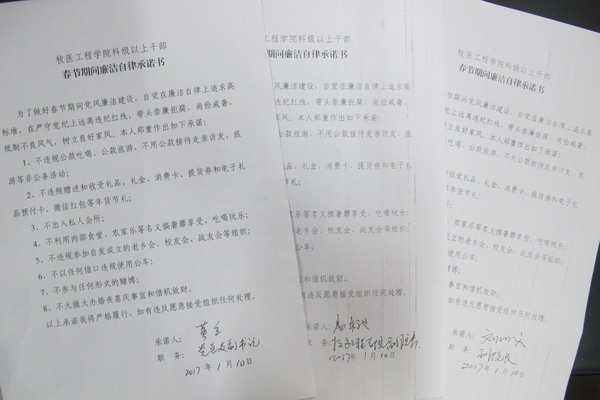 牧医工程学院科级以上干部
春节期间廉洁自律承诺书
为了做好春节期间党风廉洁建设，自觉在廉洁自律上追求高
标准，在严守党纪上远离违纪红线，带头崇廉拒腐，尚俭戒奢，
抵制不良风气，树立良好家风。本人郑重作出如下承诺：
1．不违规公款吃喝、公款旅游，不用公款接待走亲访友、旅
游等非公务活动；
2．不违规赠送和收受礼品、礼金、消费卡、提货券和电子礼
品预付卡、微信红包等年货节礼；
3．不出入私人会所；
4．不利用内部食堂、农家乐等名义搞奢靡享受、吃喝玩乐；
5．不违规参加自发成立的老乡会、校友会、战友会等组织；
6．不以任何借口违规使用公车；
7．不参与任何形式的赌博；
8．不大操大办婚丧喜庆事宜和借机敛财。
以上承诺我将严格履行，如有违反愿意接受组织任何处理。
承诺人：
职 务：党总支副书记
2017年1月10日
牧医工程学院科级以上干部
春节期间廉洁自律承诺书
期间党风廉洁建设，自觉在廉洁自律上追求高
违纪红线，带头崇廉拒腐，尚俭戒奢，
家风。本人郑重作出如下承诺：
公款旅游，不用公款接待走亲访友、旅
礼品、礼金、消费卡、提货券和电子礼
节礼；
农家乐等名义搞奢靡享受、吃喝玩乐；
的老乡会、校友会、战友会等组织；
使用公车；
博；
事宜和借机敛财。
如有违反愿意接受组织任何处理。
承诺人：
职 务：牧医工程学院副院长
2017年1月10日
牧医工程学院科级以上干部
春节期间廉洁自律承诺书
春节期间党风廉洁建设，自觉在廉洁自律上追求高
上远离违纪红线，带头崇廉拒腐，尚俭戒奢，
立良好家风。本人郑重作出如下承诺：
吃喝、公款旅游，不用公款接待走亲访友、旅
和收受礼品、礼金、消费卡、提货券和电子礼
年货节礼；
农家乐等名义搞奢靡享受、吃喝玩乐；
成立的老乡会、校友会、战友会等组织；
违规使用公车；
赌博；
喜庆事宜和借机敛财。
如有违反愿意接受组织任何处理。
承诺人：
职 务：副院长
2017年1月10日